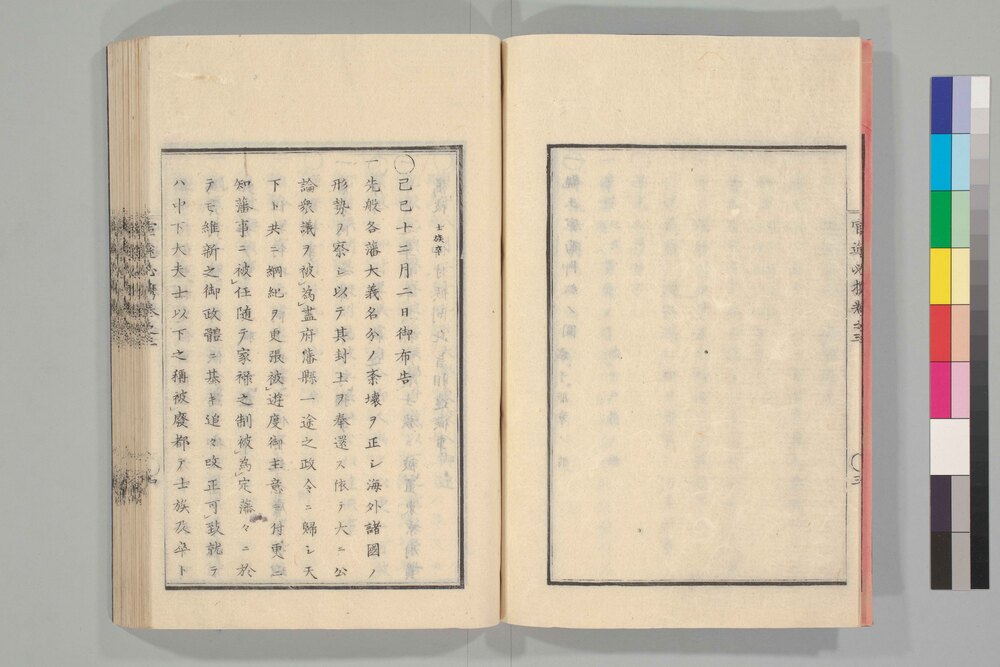 官途必携卷之三
三
士族卒
己巳十二月二日御布告
一先般各藩大義名分ノ紊壊ヲ正シ海外諸國ノ
形勢ヲ察シ以テ其封土ヲ奉還ス依テ大ニ公
論衆議ヲ被爲盡府藩縣一途之政令ニ歸シ天
下ト共ニ綱紀ヲ更張被遊度御主意ニ付更ニ
知藩事ニ被任随テ家禄之制被爲定藩々ニ於
テモ維新之御政體ニ基キ追々改正可致就テ
ハ中下大夫士以下之稱被廢都テ士族及卒ト
四